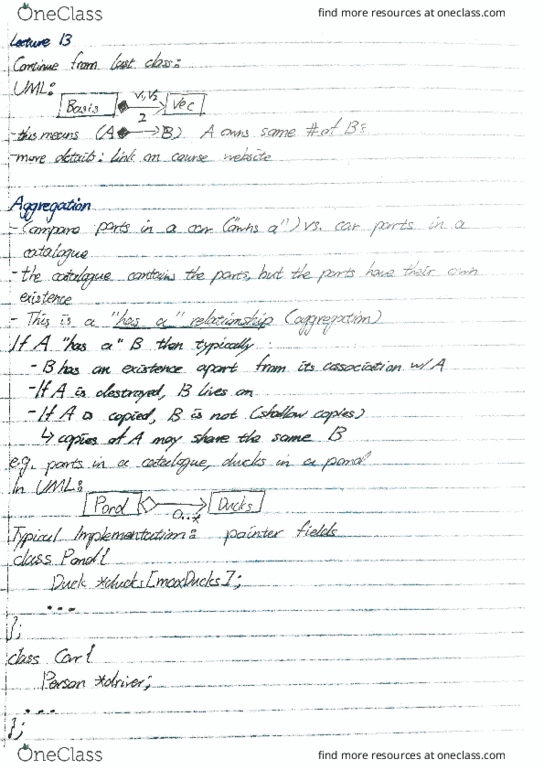 OneClass find more resources at oneclass.com
Lecture 13
Continue from last class:
UML:
Basis v1,v2 Vec
2
- this means (A → B) A owns some # of B's
- more details: link on course website
Aggregation
- Compare parts in a car ("owns a") vs. car parts in a
catalogue
- the catalogue contains the parts, but the parts have their own
existence
- This is a "has a" relationship (aggregation)
If A "has a" B then typically:
- B has an existence apart from its association w/ A
- If A is destroyed, B lives on
- If A is copied, B is not (shallow copies)
↳ copies of A may share the same B
e.g. parts in a catalogue, ducks in a pond
In UML:
Pond Ducks
0..*
Typical Implementation: pointer fields
class Pond{
Duck *ducks[maxDucks];
...
};
class Car{
Person *driver;
...
};
OneClass find more resources at oneclass.com